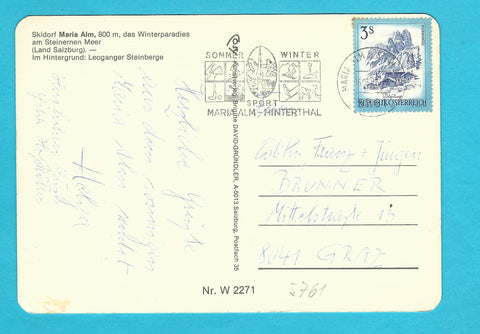 Skidorf Maria Alm, 800 m, das Winterparadies
am Steinernen Meer
(Land Salzburg). —
Im Hintergrund: Leoganger Steinberge
SOMMER WINTER
SPORT
MARIA ALM-HINTERTHAL
MARIA ALM
3S
REPUBLIK ÖSTERREICH
Brigitte DAVID-GRÜNDLER, A-5013 Salzburg, Postfach 35
Herzliche Grüße
aus dem sonnigen
Maria Alm sendet
Franz + Jürgen
BRUNNER
Mittelstraße 13
8041 GRAZ
Nr. W 2271
5761